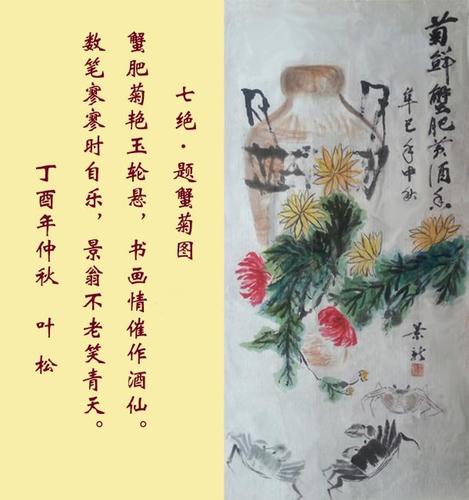 七绝·题蟹菊图
蟹肥菊艳玉轮悬，书画情催作酒仙。
数笔寥寥时自乐，景翁不老笑青天。
丁酉年仲秋 叶松
菊鲜蟹肥黄酒香
辛巳年中秋
景